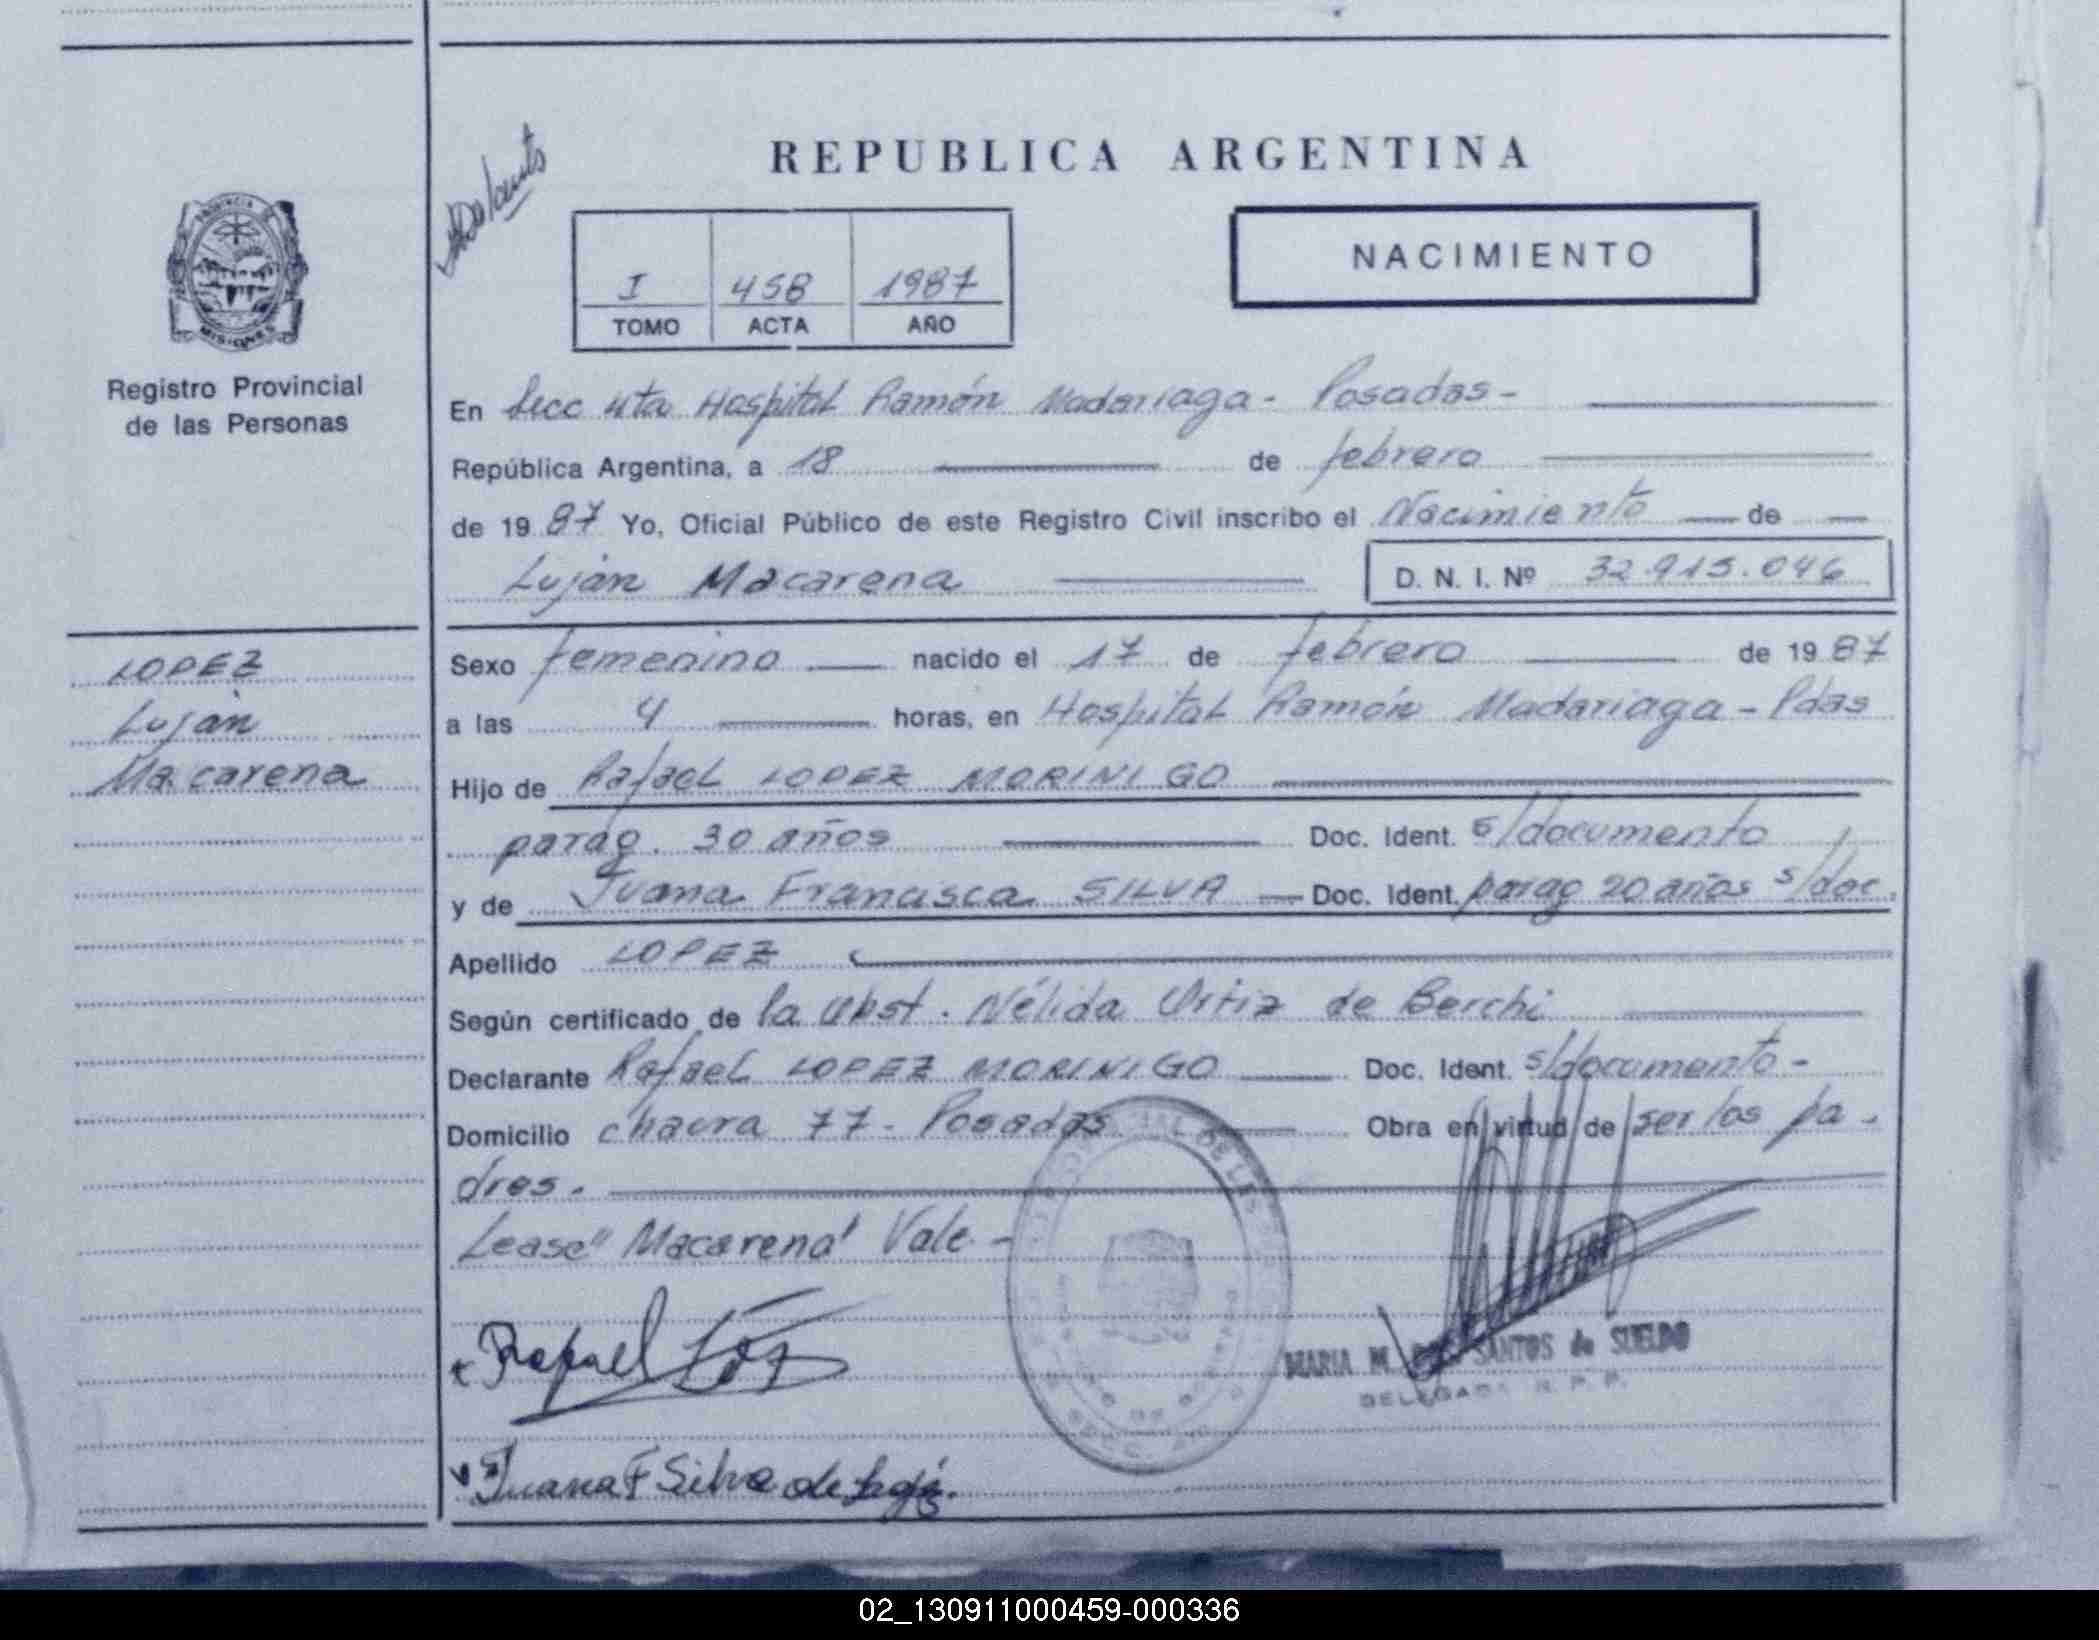 REPUBLICA ARGENTINA
NACIMIENTO
I 458 1987
TOMO ACTA AÑO
PROVINCIA DE
MISIONES
Registro Provincial
de las Personas
En Secc 4ta Hospital Ramón Madariaga - Posadas -
República Argentina, a 18 de febrero
de 1987 Yo, Oficial Público de este Registro Civil inscribo el Nacimiento de
Luján Macarena D. N. I. Nº 32.915.046
LOPEZ
Luján
Macarena
Sexo femenino nacido el 17 de febrero de 1987
a las 4 horas, en Hospital Ramón Madariaga - Pdas
Hijo de Rafael LOPEZ MORINIGO
parag. 30 años Doc. Ident. s/documento
y de Juana Francisca SILVA Doc. Ident. parag 20 años s/doc.
Apellido LOPEZ
Según certificado de la Obst. Nélida Ortiz de Berchi
Declarante Rafael LOPEZ MORINIGO Doc. Ident. s/documento -
Domicilio chacra 77 - Posadas Obra en virtud de ser los pa-
dres.
Lease "Macarena" Vale -
Rafael
MARIA M. SANTOS de SUELDO
DELEGADA R. P. P.
Juana F Silva de
02_130911000459-000336